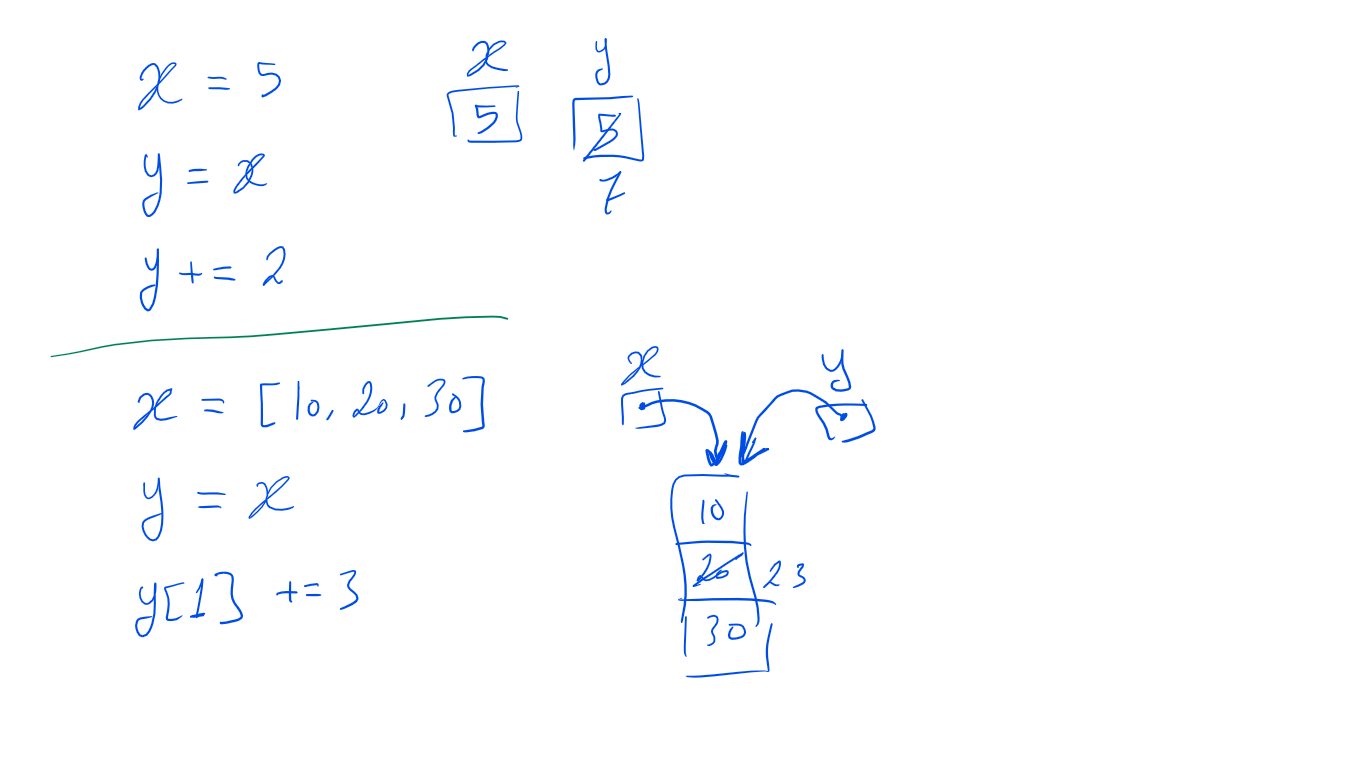 x = 5
y = x
y += 2
x y
5 5
7
x = [10, 20, 30]
y = x
y[1] += 3
x y
10
20 23
30